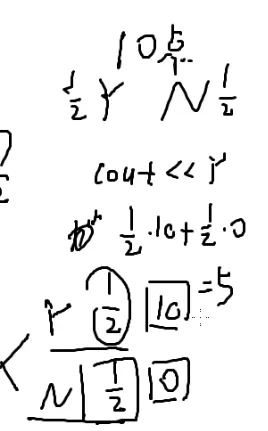 10 5
1/2 Y N 1/2
cout << Y
1/2 · 10 + 1/2 · 0
Y 1/2 10 = 5
N 1/2 0